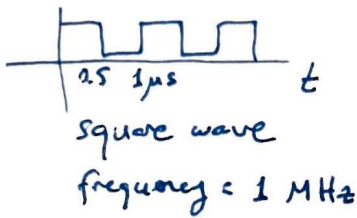 0.5 1μs t
square wave
frequency = 1 MHz